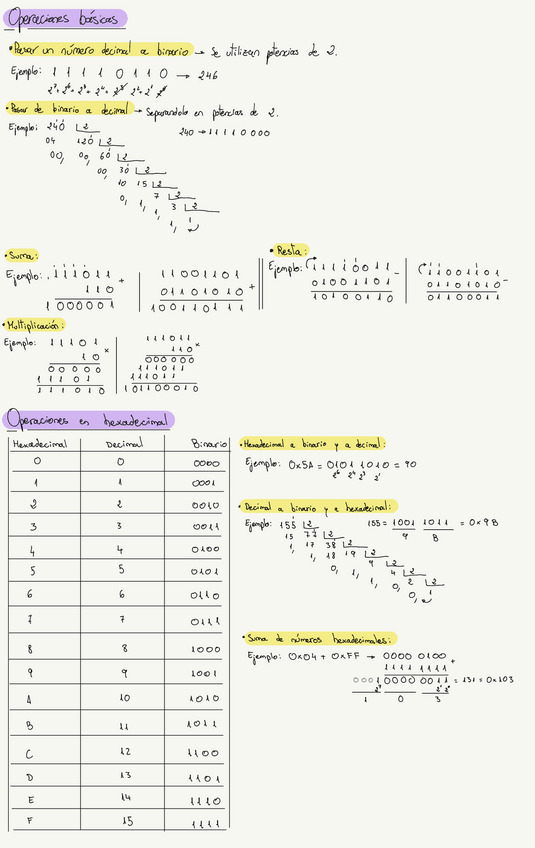 Operaciones básicas
• Pasar un número decimal a binario → Se utilizan potencias de 2.
Ejemplo: 1 1 1 1 0 1 1 0 → 246
2⁷+2⁶+2⁵+2⁴+2³+2²+2¹ 2⁰
• Pasar de binario a decimal → Separandolo en potencias de 2.
Ejemplo: 240 |2
240 → 1 1 1 1 0 0 0 0
04 120 |2
00, 00, 60 |2
00, 30 |2
10 15 |2
0, 1, 7 |2
1, 3 |2
1, 1
• Suma:
Ejemplo: 111011 +
110
1000001
11001101
01101010 +
100110111
• Resta:
Ejemplo: 11110011 -
01001101
10100110
11001101
01101010 -
01100011
• Multiplicación:
Ejemplo: 11101
10 x
00000
11101
111010
111011
110 x
000000
111011
111011
101100010
Operaciones en hexadecimal
Hexadecimal Decimal Binario
0 0 0000
1 1 0001
2 2 0010
3 3 0011
4 4 0100
5 5 0101
6 6 0110
7 7 0111
8 8 1000
9 9 1001
A 10 1010
B 11 1011
C 12 1100
D 13 1101
E 14 1110
F 15 1111
• Hexadecimal a binario y a decimal:
Ejemplo: 0x5A = 0101 1010 = 90
2⁶ 2⁴ 2³ 2¹
• Decimal a binario y a hexadecimal:
Ejemplo: 155 |2
155 = 1001 1011 = 0x9B
9 B
15 77 |2
1, 17 38 |2
1, 18 19 |2
0, 1, 9 |2
1, 4 |2
0, 2 |2
0, 1
• Suma de números hexadecimales:
Ejemplo: 0x04 + 0xFF → 0000 0100
1111 1111 +
0001 0000 0011 = 131 = 0x103
2⁷ 2¹ 2⁰
1 0 3